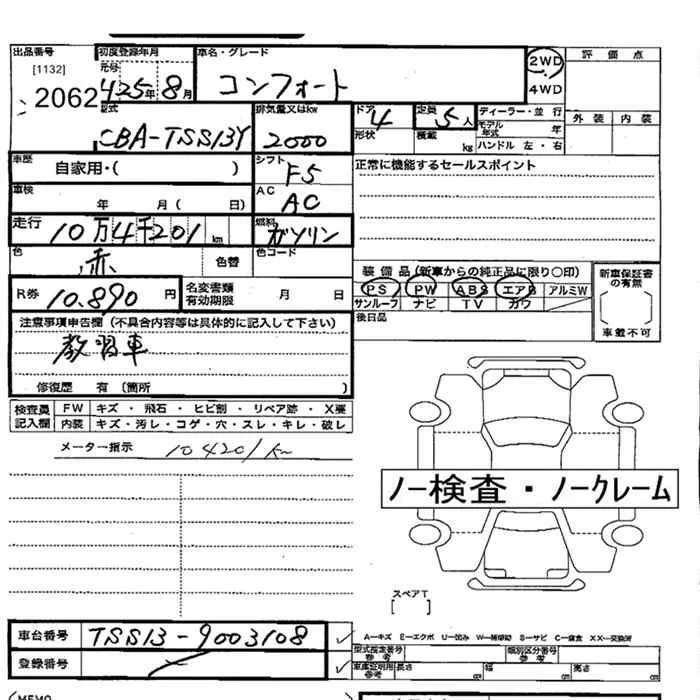 出品番号 初度登録年月 車名・グレード 2WD 評価点
[1132] 元号 425年8月 コンフォート 4WD
2062 型式 排気量又はkw ドア 定員 ディーラー・並行 外装 内装
CBA-TSS13Y 2000 4 5人 モデル年式 年
形状 積載 kg ハンドル 左・右
車歴 自家用・( ) シフト F5 正常に機能するセールスポイント
車検 年 月( 日) AC AC
走行 10万4千201km 燃料 ガソリン
色 赤 色替 色コード
装備品(新車からの純正品に限り〇印) 新車保証書の有無
R券 10.890円 名変書類有効期限 月 日 PS PW ABS エアB アルミW
サンルーフ ナビ TV カワ 車載不可
注意事項申告欄(不具合内容等は具体的に記入して下さい) 後日品
教習車
修復歴 有(箇所 )
検査員 FW キズ・飛石・ヒビ割・リペア跡・X要
記入欄 内装 キズ・汚レ・コゲ・穴・スレ・キレ・破レ
メーター指示 104201km
ノー検査・ノークレーム
スペアT
[ ]
車台番号 TSS13-9003108 A–キズ E–エクボ U–凹み W–補修跡 S–サビ C–腐食 XX–交換済
型式指定番号参考 類別区分番号参考
登録番号 車庫証明用参考 長さ cm 幅 cm 高さ cm
MEMO